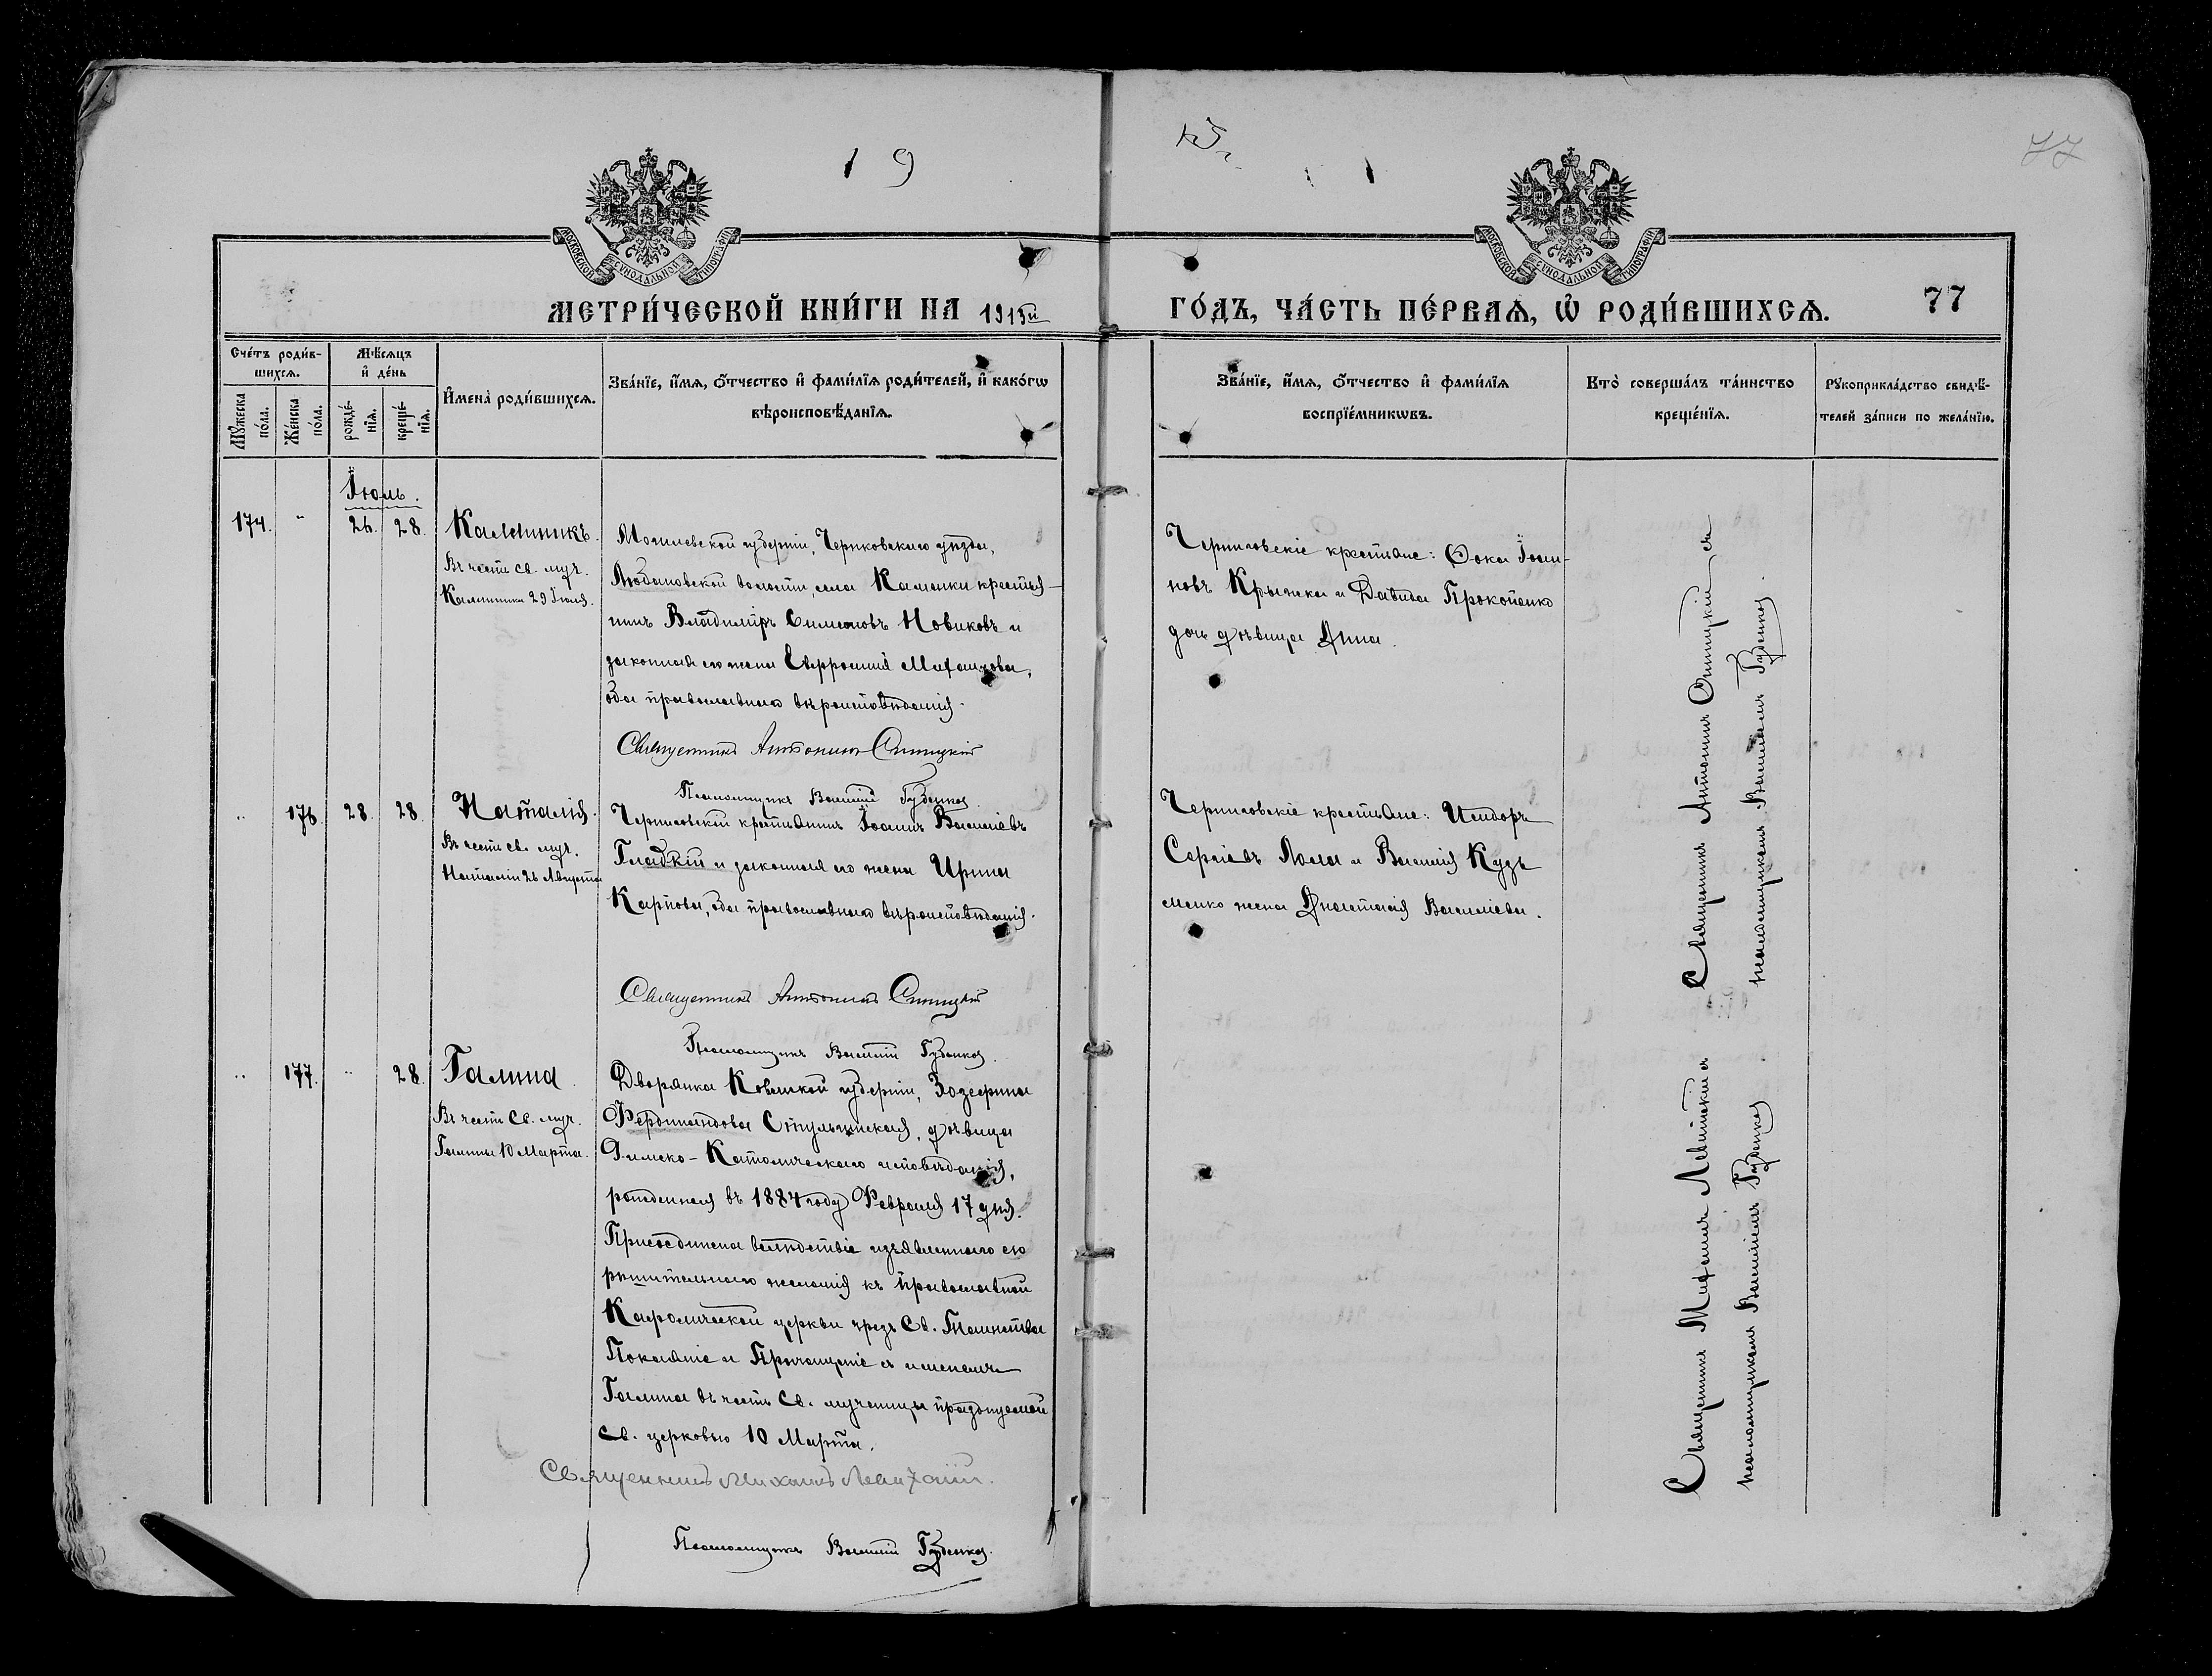 19
15 г.
77
МОСКОВСКОЙ СѴНОДАЛЬНОЙ ТИПОГРАФІИ
МОСКОВСКОЙ СѴНОДАЛЬНОЙ ТИПОГРАФІИ
МЕТРИ́ЧЕСКОЙ КНИ́ГИ НА 1915й
ГО́ДЪ, ЧА́СТЬ ПЕ́РВАЯ, Ѡ РОДИ́ВШИХСЯ.
77
Сче́тъ роди́вшихся.
Му́жеска по́ла.
Же́нска по́ла.
Мѣ́сяцъ и де́нь
рожде́нія.
креще́нія.
Имена̀ роди́вшихся.
Зва́ніе, и́мя, о́тчество и фами́лія роди́телей, и како́гѡ
вѣроисповѣ́данія.
Зва́ніе, и́мя, о́тчество и фами́лія
воспріе́мникѡвъ.
Кто̀ соверша́лъ та́инство
креще́нія.
Рукоприкла́дство свидѣ́-
телей за́писи по жела́нію.
Іюль.
174. " 26. 28. Каллиникъ.
Въ честь св. муч.
Каллиника 29 Іюля.
Могилевской губерніи, Чериковскаго уѣзда,
волости, села Каменки крестья-
нинъ Владиміръ Симеоновъ Новиковъ и
законная его жена Евфросинія Михаилова,
оба православнаго вѣроисповѣданія.
Священникъ Антонинъ
Псаломщикъ Василій Губенко.
Черниговскіе крестьяне: Ѳока Іоан-
новъ Крыжка и Давида Прокопенко
дочь дѣвица Анна.
" 176. 28. 28. Наталія.
Въ честь св. муч.
Наталіи 26 Августа
крестьянинъ Іоаннъ Василіевъ
Гладкій и законная его жена Ирина
Карпова, оба православнаго вѣроисповѣданія.
Священникъ Антонинъ
Псаломщикъ Василій Губенко.
крестьяне: Исидоръ
Сергіевъ Лола и Василія Кузь
менко жена Анастасія Василіева.
Священникъ Антонинъ съ
псаломщикомъ Василіемъ Губенко.
" 177. " 28. Галина.
Въ честь Св. муч.
Галины 10 Марта.
Дворянка Ковенской губерніи, Юзефина
Фердинандова дѣвица
Римско-Католическаго исповѣданія,
рожденная въ 1884 году Февраля 17 дня.
Присоединена вслѣдствіе изъявленнаго ею
рѣшительнаго желанія къ православной
Каѳолической церкви чрезъ Св. Таинства
Покаяніе и Причащеніе съ именемъ
Галина въ честь Св. мученицы празднуемой
Св. церковью 10 Марта.
Священникъ Михаилъ Левитскій.
Псаломщикъ Василій Губенко.
Священникъ Михаилъ Левитскій съ
псаломщикомъ Василіемъ Губенко.